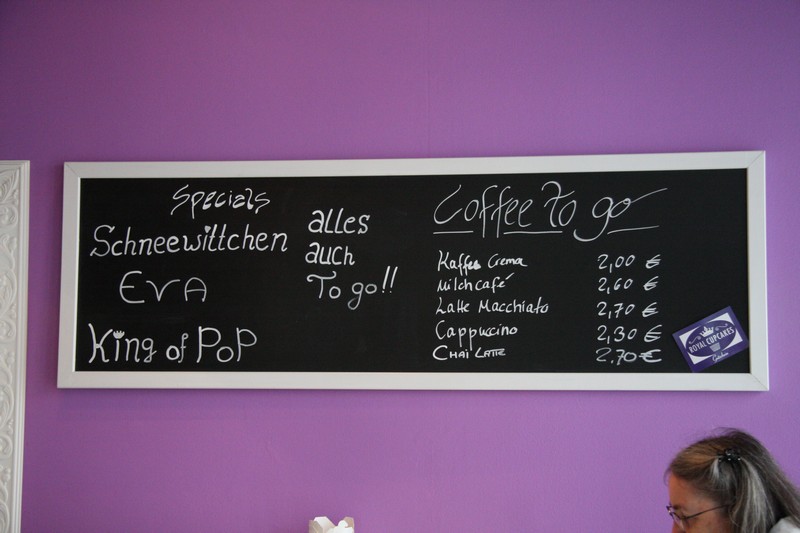 Specials
Schneewittchen
EVA
King of PoP
alles
auch
To go!!
Coffee to go
Kaffee Crema 2,00 €
Milchcafé 2,60 €
Latte Macchiato 2,70 €
Cappuccino 2,30 €
CHAI LATTE 2,70 €
ROYAL CUPCAKES